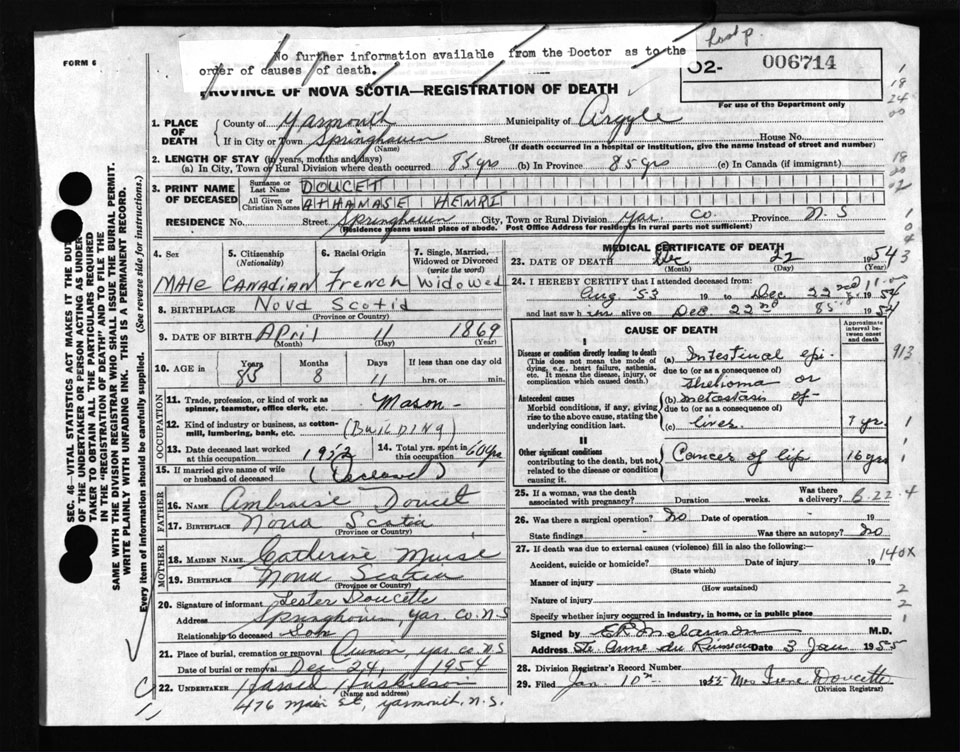 No further information available from the Doctor as to the
order of causes of death.
FORM 6
02- 006714
For use of the Department only
PROVINCE OF NOVA SCOTIA—REGISTRATION OF DEATH
1. PLACE OF DEATH
County of Yarmouth Municipality of Argyle
If in City or Town Springhaven Street House No.
(Name) (If death occurred in a hospital or institution, give the name instead of street and number)
2. LENGTH OF STAY (in years, months and days)
(a) In City, Town or Rural Division where death occurred 85 yrs (b) In Province 85 yrs (c) In Canada (if immigrant)
3. PRINT NAME OF DECEASED
Surname or Last Name DOUCET
All Given or Christian Names ATHANASE HENRI
RESIDENCE No. Street Springhaven City, Town or Rural Division Yar. Co. Province N.S
(Residence means usual place of abode. Post Office Address for residents in rural parts not sufficient)
4. Sex
Male
5. Citizenship (Nationality)
Canadian
6. Racial Origin
French
7. Single, Married, Widowed or Divorced (write the word)
Widowed
8. BIRTHPLACE Nova Scotia
(Province or Country)
9. DATE OF BIRTH April 11 1869
(Month) (Day) (Year)
10. AGE in Years Months Days If less than one day old
85 8 11 hrs. or min.
OCCUPATION
11. Trade, profession, or kind of work as spinner, teamster, office clerk, etc. Mason-
12. Kind of industry or business, as cotton-mill, lumbering, bank, etc. (Building)
13. Date deceased last worked at this occupation 1952
14. Total yrs. spent in this occupation 60 yrs
15. If married give name of wife or husband of deceased (Deceased)
FATHER
16. NAME Ambroise Doucet
17. BIRTHPLACE Nova Scotia
(Province or Country)
MOTHER
18. MAIDEN NAME Catherine Muise
19. BIRTHPLACE Nova Scotia
(Province or Country)
20. Signature of informant Lester Doucette
Address Springhaven, Yar. Co. N.S
Relationship to deceased Son
21. Place of burial, cremation or removal Quinan, Yar. Co. N.S
Date of burial or removal Dec 24, 1954
22. UNDERTAKER Harold Huskilson
(Name and address)
476 Main St, Yarmouth, N.S.
MEDICAL CERTIFICATE OF DEATH
23. DATE OF DEATH Dec 22 1954
(Month) (Day) (Year)
24. I HEREBY CERTIFY that I attended deceased from:
Aug '53 19 to Dec. 22nd 1954
and last saw him alive on Dec. 22nd 1954
CAUSE OF DEATH
Approximate interval between onset and death
I
Disease or condition directly leading to death
(This does not mean the mode of dying, e.g., heart failure, asthenia, etc. It means the disease, injury, or complication which caused death.)
(a) Intestinal epi-
due to (or as a consequence of)
thelioma or
Antecedent causes
Morbid conditions, if any, giving rise to the above cause, stating the underlying condition last.
(b) metastasis of-
due to (or as a consequence of)
(c) liver. 7 yr.
II
Other significant conditions
contributing to the death, but not related to the disease or condition causing it.
Cancer of lip 16 yrs
25. If a woman, was the death associated with pregnancy? Duration weeks. Was there a delivery?
26. Was there a surgical operation? No Date of operation 19
State findings Was there an autopsy? No
27. If death was due to external causes (violence) fill in also the following:—
Accident, suicide or homicide? Date of injury 19
(State which)
140X
Manner of injury
(How sustained)
Nature of injury
Specify whether injury occurred in industry, in home, or in public place
Signed by M.D.
Address Ste. Anne du Ruisseau Date 3 Jan 1955
28. Division Registrar's Record Number
29. Filed Jan. 10th 1955 Mrs Irene Doucette
(Division Registrar)
SEC. 46—VITAL STATISTICS ACT MAKES IT THE DUTY
OF THE UNDERTAKER OR PERSON ACTING AS UNDER-
TAKER TO OBTAIN ALL THE PARTICULARS REQUIRED
IN THE "REGISTRATION OF DEATH" AND TO FILE THE
SAME WITH THE DIVISION REGISTRAR WHO SHALL ISSUE THE BURIAL PERMIT.
WRITE PLAINLY WITH UNFADING INK. THIS IS A PERMANENT RECORD.
Every item of information should be carefully supplied. (See reverse side for instructions.)